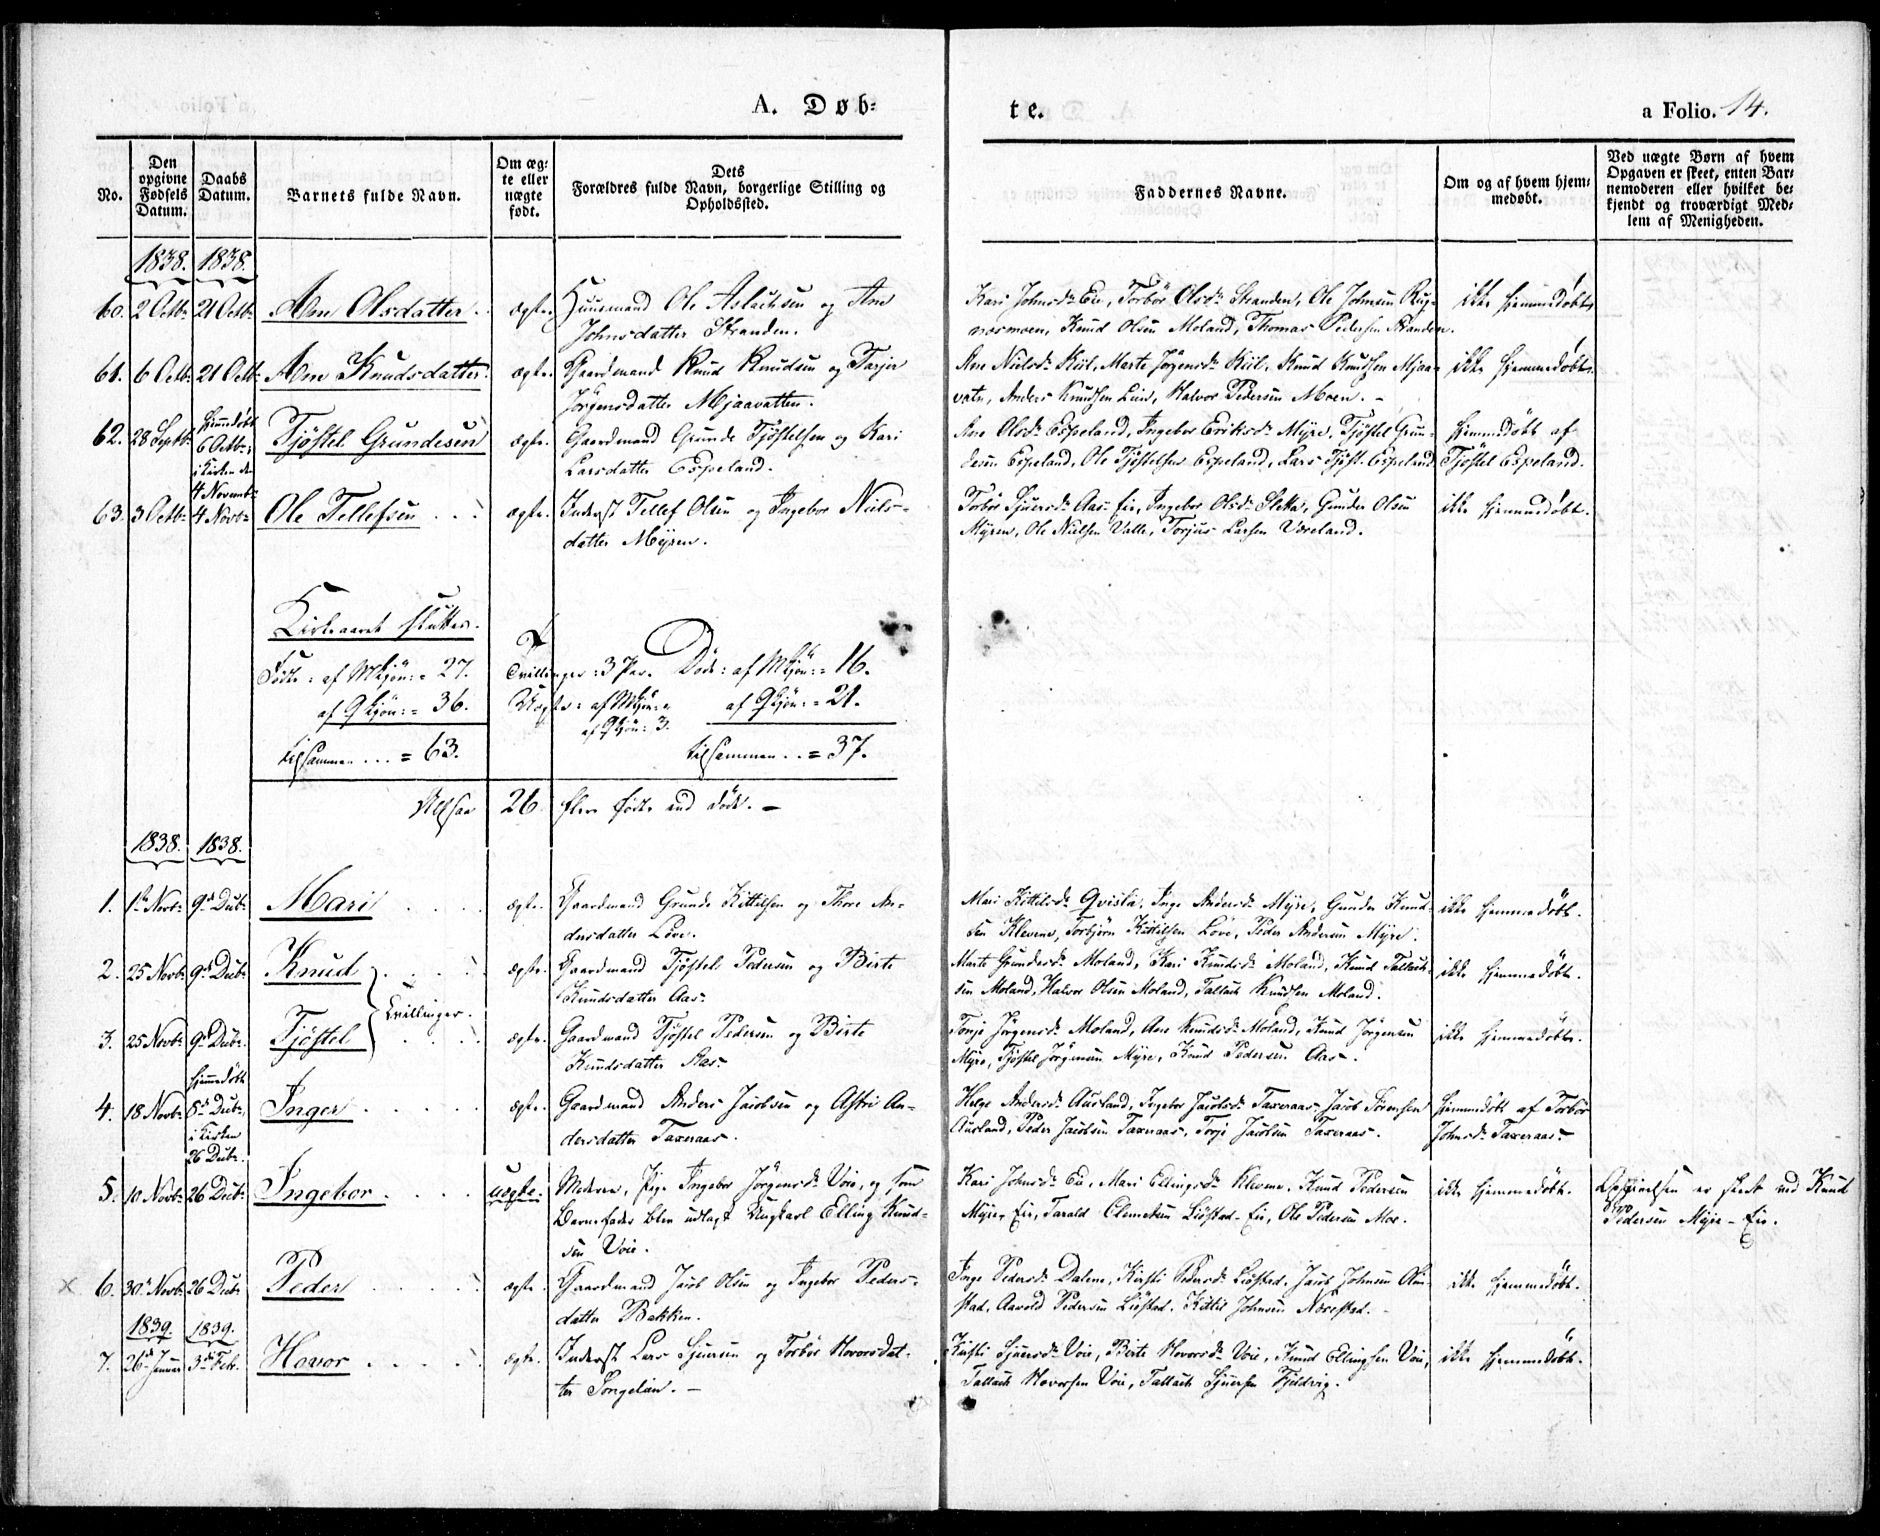 A. Døb=
te.
a Folio. 14.
No.
Den opgivne Fødsels Datum.
Daabs Datum.
Barnets fulde Navn.
Om æg= te eller uægte født.
Dets Forældres fulde Navn, borgerlige Stilling og Opholdssted.
Faddernes Navne.
Om og af hvem hjem= medøbt.
Ved uægte Børn af hvem Opgaven er skeet, enten Bar= nemoderen eller hvilket be= kjendt og troværdigt Med= lem af Menigheden.
1838. 1838.
60. 2 Octbr 21 Octbr Ane Olsdatter ægte. Huusmand Ole Aslachsen og Ane
Johnsdatter Stranden.
Kari Johnsdr Eie, Torbor Olsdr Stranden, Ole Johnsen Rug=
næsmoen, Knud Olsen Moland, Thomas Pedersen Stranden.
ikke hjemmedøbt.
61. 6 Octbr 21 Octbr Ane Knudsdatter. ægte. Gaardmand Knud Knudsen og Tarjer
Jørgensdatter Mjaavatten.
Ane Nielsdr Kiil, Marte Jørgensdr Kiil, Knud Knudsen Mjaa=
vatn, Anders Knudsen Lien, Halvor Pedersen Moen.
ikke hjemmedøbt.
62. 28 Septb. Hjemmedøbt 6 Octbr, i Kirken den 4 Novembr Tjøstel Grundesen ægte. Gaardmand Grunde Tjøstelsen og Kari
Larsdatter Espeland.
Ane Olsdr Espeland, Ingebor Eriksdr Myre, Tjøstel Grun=
desen Espeland, Ole Tjøstelsen Espeland, Lars Tjøst. Espeland
Hjemmedøbt af
Tjøstel Espeland.
63. 3 Octbr 4 Novbr Ole Tellefsen ægte. Inderst Tellef Olsen og Ingebor Niels=
datter Myren.
Torbor Sjuersdr Aas Eie, Ingebor Olsdr Sletta, Gunder Olsen
Myren, Ole Nielsen Valle, Torjus Larsen Væreland.
ikke hjemmedøbt.
Kirkeaaret slutter.
Født: af Mkjön: = 27. Tvillinger: 3 Par. Døde: af Mkjön: = 16.
af Qkjön: = 36. Uægte: af Mkjön: = af Qkjön: 3. af Qkjön: = 21.
tilsammen ... = 63. tilsammen .. = 37.
Altsaa 26. flere fødte end døde. —
1838. 1838.
1. 1te Novbr 9de Decbr Mari ægte. Gaardmand Grunde Kittilsen og Thore An=
dersdatter Löve.
Mari Kittilsdr Qvisla, Inge Andersdr Myre, Gunder Knud=
sen Klevene, Torbjørn Kittilsen Löve, Peder Andersen Myre.
ikke hjemmedøbt.
2. 25 Novbr 9de Decbr Knud ægte. Gaardmand Tjøstel Pedersen og Birte
Knudsdatter Aas.
Tvillinger.
Marte Gundersdr Moland, Kari Knudsdr Moland, Knud Tallach=
sen Moland, Halvor Olsen Moland, Tallach Knudsen Moland.
ikke hjemmedøbt.
3. 25 Novbr 9de Decbr. Tjøstel ægte. Gaardmand Tjøstel Pedersen og Birte
Knudsdatter Aas.
Tonje Jørgensdr Moland, Ane Knudsdr Moland, Knud Jørgensen
Myre, Tjøstel Jørgensen Myre, Knud Pedersen Aas.
ikke hjemmedøbt.
4. 18 Novbr Hjemmedøbt 8de Decbr, i Kirken 26 Decbr. Inger ægte. Gaardmand Anders Jacobsen og Astri An=
dersdatter Taxeraas.
Helge Andersdr Ausland, Ingebor Jacobsdr Taxeraas, Jacob Sörensen
Ausland, Peder Jacobsen Taxeraas, Terje Jacobsen Taxeraas.
hjemmedøbt af Torbor
Johnsdr Taxeraas.
5. 10 Novbr 26 Decbr Ingebor uægte. Moderen, Pige Ingebor Jörgensdr Voie, og som
Barnefader blev udlagt Ungkarl Elling Knud=
sen Voie.
Kari Johnsdr Eie, Mari Ellingsdr Klevene, Knud Pedersen
Myre Eie, Tarald Clemetsen Liöstad-Eie, Ole Pedersen Moe.
ikke hjemmedøbt.
Opgivelsen er skeet ved Knud
Pedersen Myre-Eie.
x 6. 30 Novbr 26 Decbr Peder ægte. Gaardmand Jacob Olsen og Ingebor Peders=
datter Bakken.
Inge Pedersdr Dalene, Kirsti Pedersdr Liöstad, Jacob Johnsen
stad, Aavold Pedersen Liöstad, Kittil Johnsen Nærestad.
ikke hjemmedøbt.
1839. 1839.
7. 26de Januar 3de Febr. Hovor ægte. Inderst Lars Sjuersen og Torbor Hovorsdat=
ter Songelien. —
Kirsti Sjuersdr Voie, Birte Hovorsdr Voie, Knud Ellingsen Voie,
Tallach Hovorsen Voie, Tallach Sjuersen Fjeldvig.
ikke hjemmedøbt.